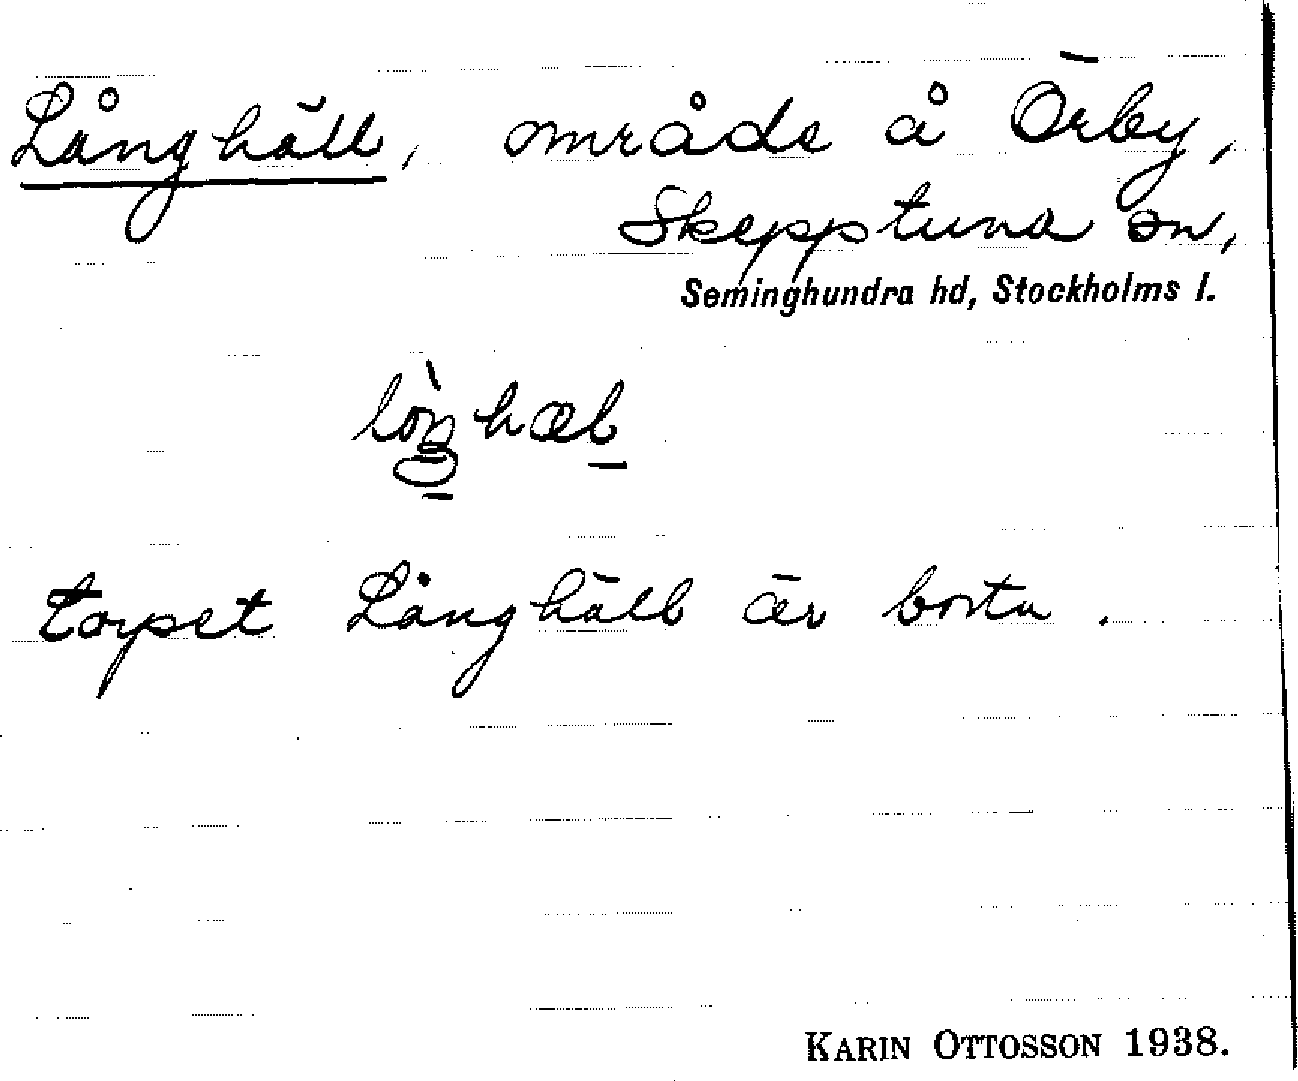 Långhäll, område å Örby,
Skepptuna sn,
Seminghundra hd, Stockholms l.
torpet Långhäll är borta.
KARIN OTTOSSON 1938.